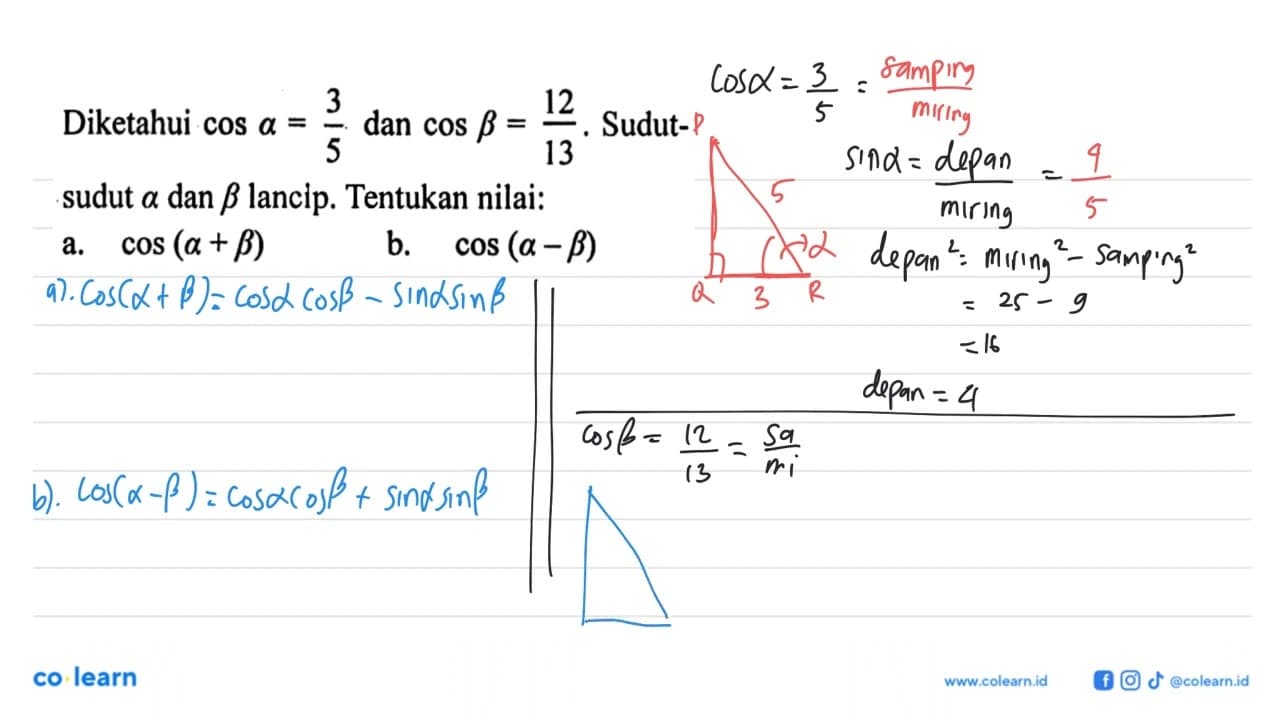 Diketahui cos α = 3/5 dan cos β = 12/13. Sudut-
sudut α dan β lancip. Tentukan nilai:
a. cos (α + β) b. cos (α – β)
a). Cos(α + β) = cosα cosβ – sinα sinβ
b). cos(α – β) = cosα cosβ + sinα sinβ
cosα = 3/5 = samping/miring
P
5
α
Q 3 R
sinα = depan/miring = 4/5
depan² = miring² – samping²
= 25 – 9
= 16
depan = 4
cosβ = 12/13 = sa/mi
co·learn
www.colearn.id
@colearn.id